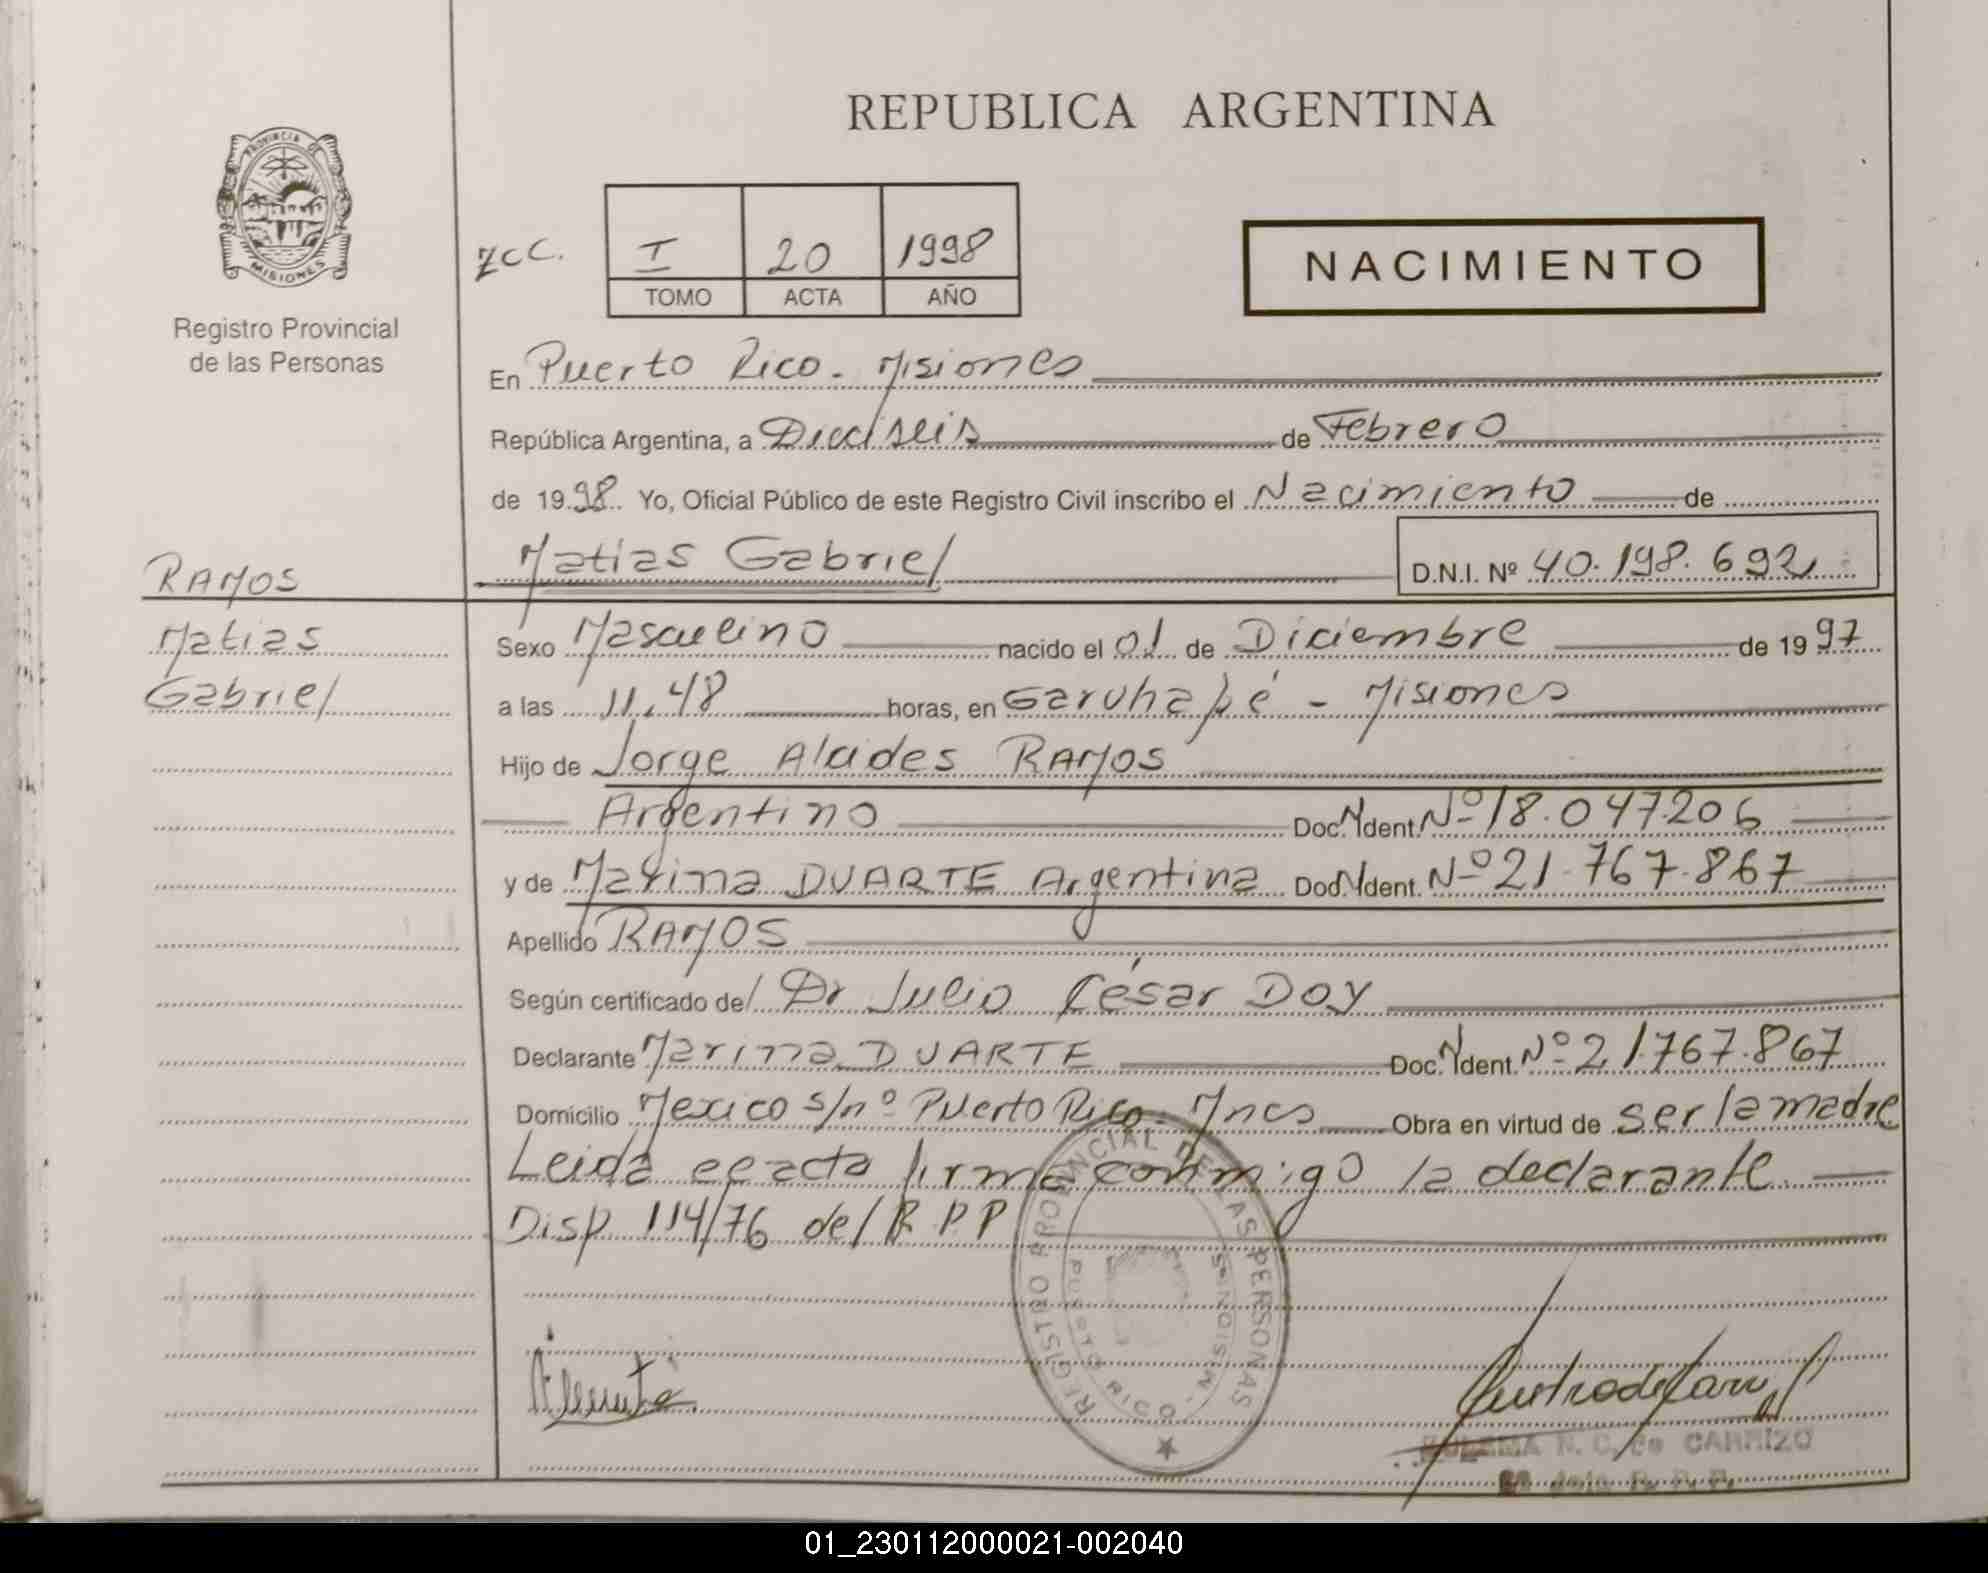 REPUBLICA ARGENTINA
PROVINCIA DE
MISIONES
Registro Provincial
de las Personas
zcc.
I 20 1998
TOMO ACTA AÑO
NACIMIENTO
En Puerto Rico - Misiones
República Argentina, a Dieciseis de Febrero
de 1998 Yo, Oficial Público de este Registro Civil inscribo el Nacimiento de
Matias Gabriel D.N.I. Nº 40.198.692
RAMOS
Matias
Gabriel
Sexo Masculino nacido el 01 de Diciembre de 1997
a las 11,48 horas, en Garuhapé - Misiones
Hijo de Jorge Alcides RAMOS
Argentino Doc. Ident. Nº 18.047.206
y de DUARTE Argentina Doc. Ident. Nº 21.767.867
Apellido RAMOS
Según certificado del Dr Julio César DOY
Declarante DUARTE Doc. Ident. Nº 21.767.867
Domicilio Mexico s/nº Puerto Rico - Mnes Obra en virtud de ser la madre
Leida el acta firma conmigo la declarante
Disp 114/76 del R.P.P
REGISTRO PROVINCIAL DE LAS PERSONAS
PUERTO RICO - MISIONES
N. C. de CARRIZO
R. P. P.
01_230112000021-002040